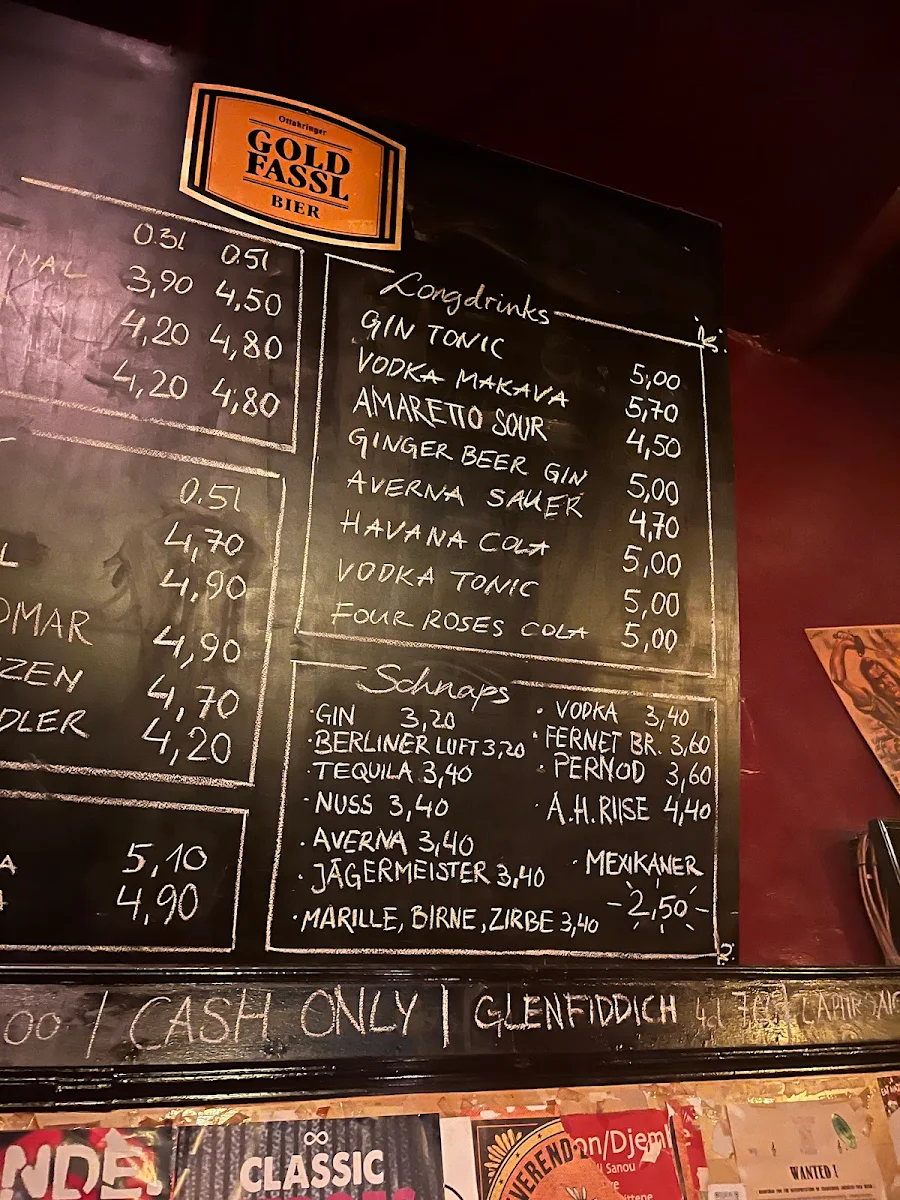 Ottakringer
GOLD
FASSL
BIER
0.3l 0.5l
INAL 3,90 4,50
4,20 4,80
4,20 4,80
0.5l
4,70
L 4,90
OMAR 4,90
ZEN 4,70
DLER 4,20
A 5,10
4,90
Longdrinks
GIN TONIC 5,00
VODKA MAKAVA 5,70
AMARETTO SOUR 4,50
GINGER BEER GIN 5,00
AVERNA SAUER 4,70
HAVANA COLA 5,00
VODKA TONIC 5,00
FOUR ROSES COLA 5,00
Schnaps
· GIN 3,20
· BERLINER LUFT 3,20
· TEQUILA 3,40
· NUSS 3,40
· AVERNA 3,40
· JÄGERMEISTER 3,40
· MARILLE, BIRNE, ZIRBE 3,40
· VODKA 3,40
· FERNET BR. 3,60
· PERNOD 3,60
· A.H.RIISE 4,40
· MEXIKANER
-2,50-
00 | CASH ONLY | GLENFIDDICH 4cl
NDE
CLASSIC
VEREND
on/Djem
Sanou
WANTED!